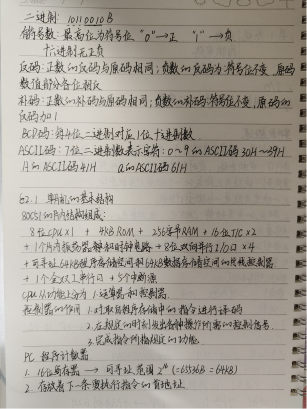 二进制: 10110010B
符号数: 最高位为符号位 "0"→正 "1"→负
十六进制无正负
反码: 正数的反码与原码相同; 负数的反码为: 符号位不变, 原码
数值部分各位相反
补码: 正数的补码与原码相同; 负数的补码: 符号位不变, 原码的
反码加1
BCD码: 每4位二进制对应1位十进制数
ASCII码: 7位二进制数表示字符: 0~9的ASCII码 30H~39H
A的ASCII码 41H a的ASCII码 61H
§2.1 单片机的基本结构
80C51的片内结构组成:
8位CPU×1 + 4KB ROM + 256字节RAM + 16位T/C×2
+ 1个片内振荡器和时钟电路 + 8位双向并行I/O口×4
+ 可寻址64KB程序存储空间和64KB数据存储空间的总线控制器
+ 1个全双工串行口 + 5个中断源
CPU从功能上分为 1.运算器和控制器.
控制器的作用 1.对取自程序存储中的指令进行译码
2.在规定的时刻发出各种操作所需的控制信号.
3.完成指令所指规定的功能.
PC 程序计数器
1. 16位寄存器 → 可寻址范围 2¹⁶ (=65536B=64KB)
2. 存放着下一条要执行指令的首地址